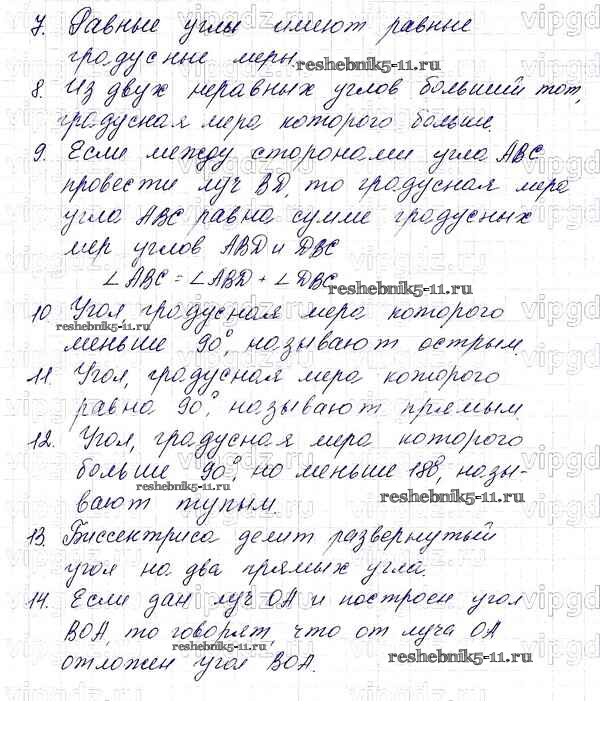 7. Равные углы имеют равные
градусные меры.
reshebnik5-11.ru
8. Из двух неравных углов больший тот,
градусная мера которого больше.
9. Если между сторонами угла ABC
провести луч BD, то градусная мера
угла ABC равна сумме градусных
мер углов ABD и DBC
∠ABC = ∠ABD + ∠DBC
reshebnik5-11.ru
10 Угол, градусная мера которого
reshebnik5-11.ru
меньше 90°, называют острым.
11. Угол, градусная мера которого
равна 90°, называют прямым.
12. Угол, градусная мера которого
больше 90°, но меньше 180°, назы-
reshebnik5-11.ru
вают тупым.
reshebnik5-11.ru
13. Биссектриса делит развернутый
угол на два прямых угла.
14. Если дан луч OA и построен угол
BOA, то говорят, что от луча OA
reshebnik5-11.ru
отложен угол BOA.
reshebnik5-11.ru